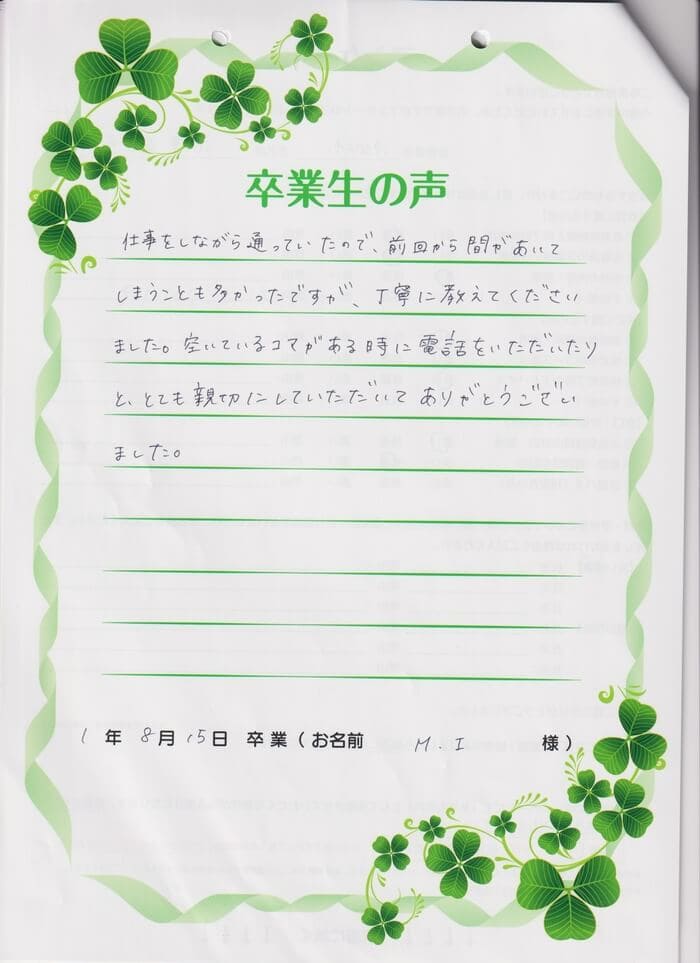 卒業生の声
仕事をしながら通っていたので、前回から間があいて
しまうことも多かったですが、丁寧に教えてください
ました。空いているコマがある時に電話をいただいたり
と、とても親切にしていただいてありがとうござい
ました。
1年8月15日 卒業(お名前 M.I 様)